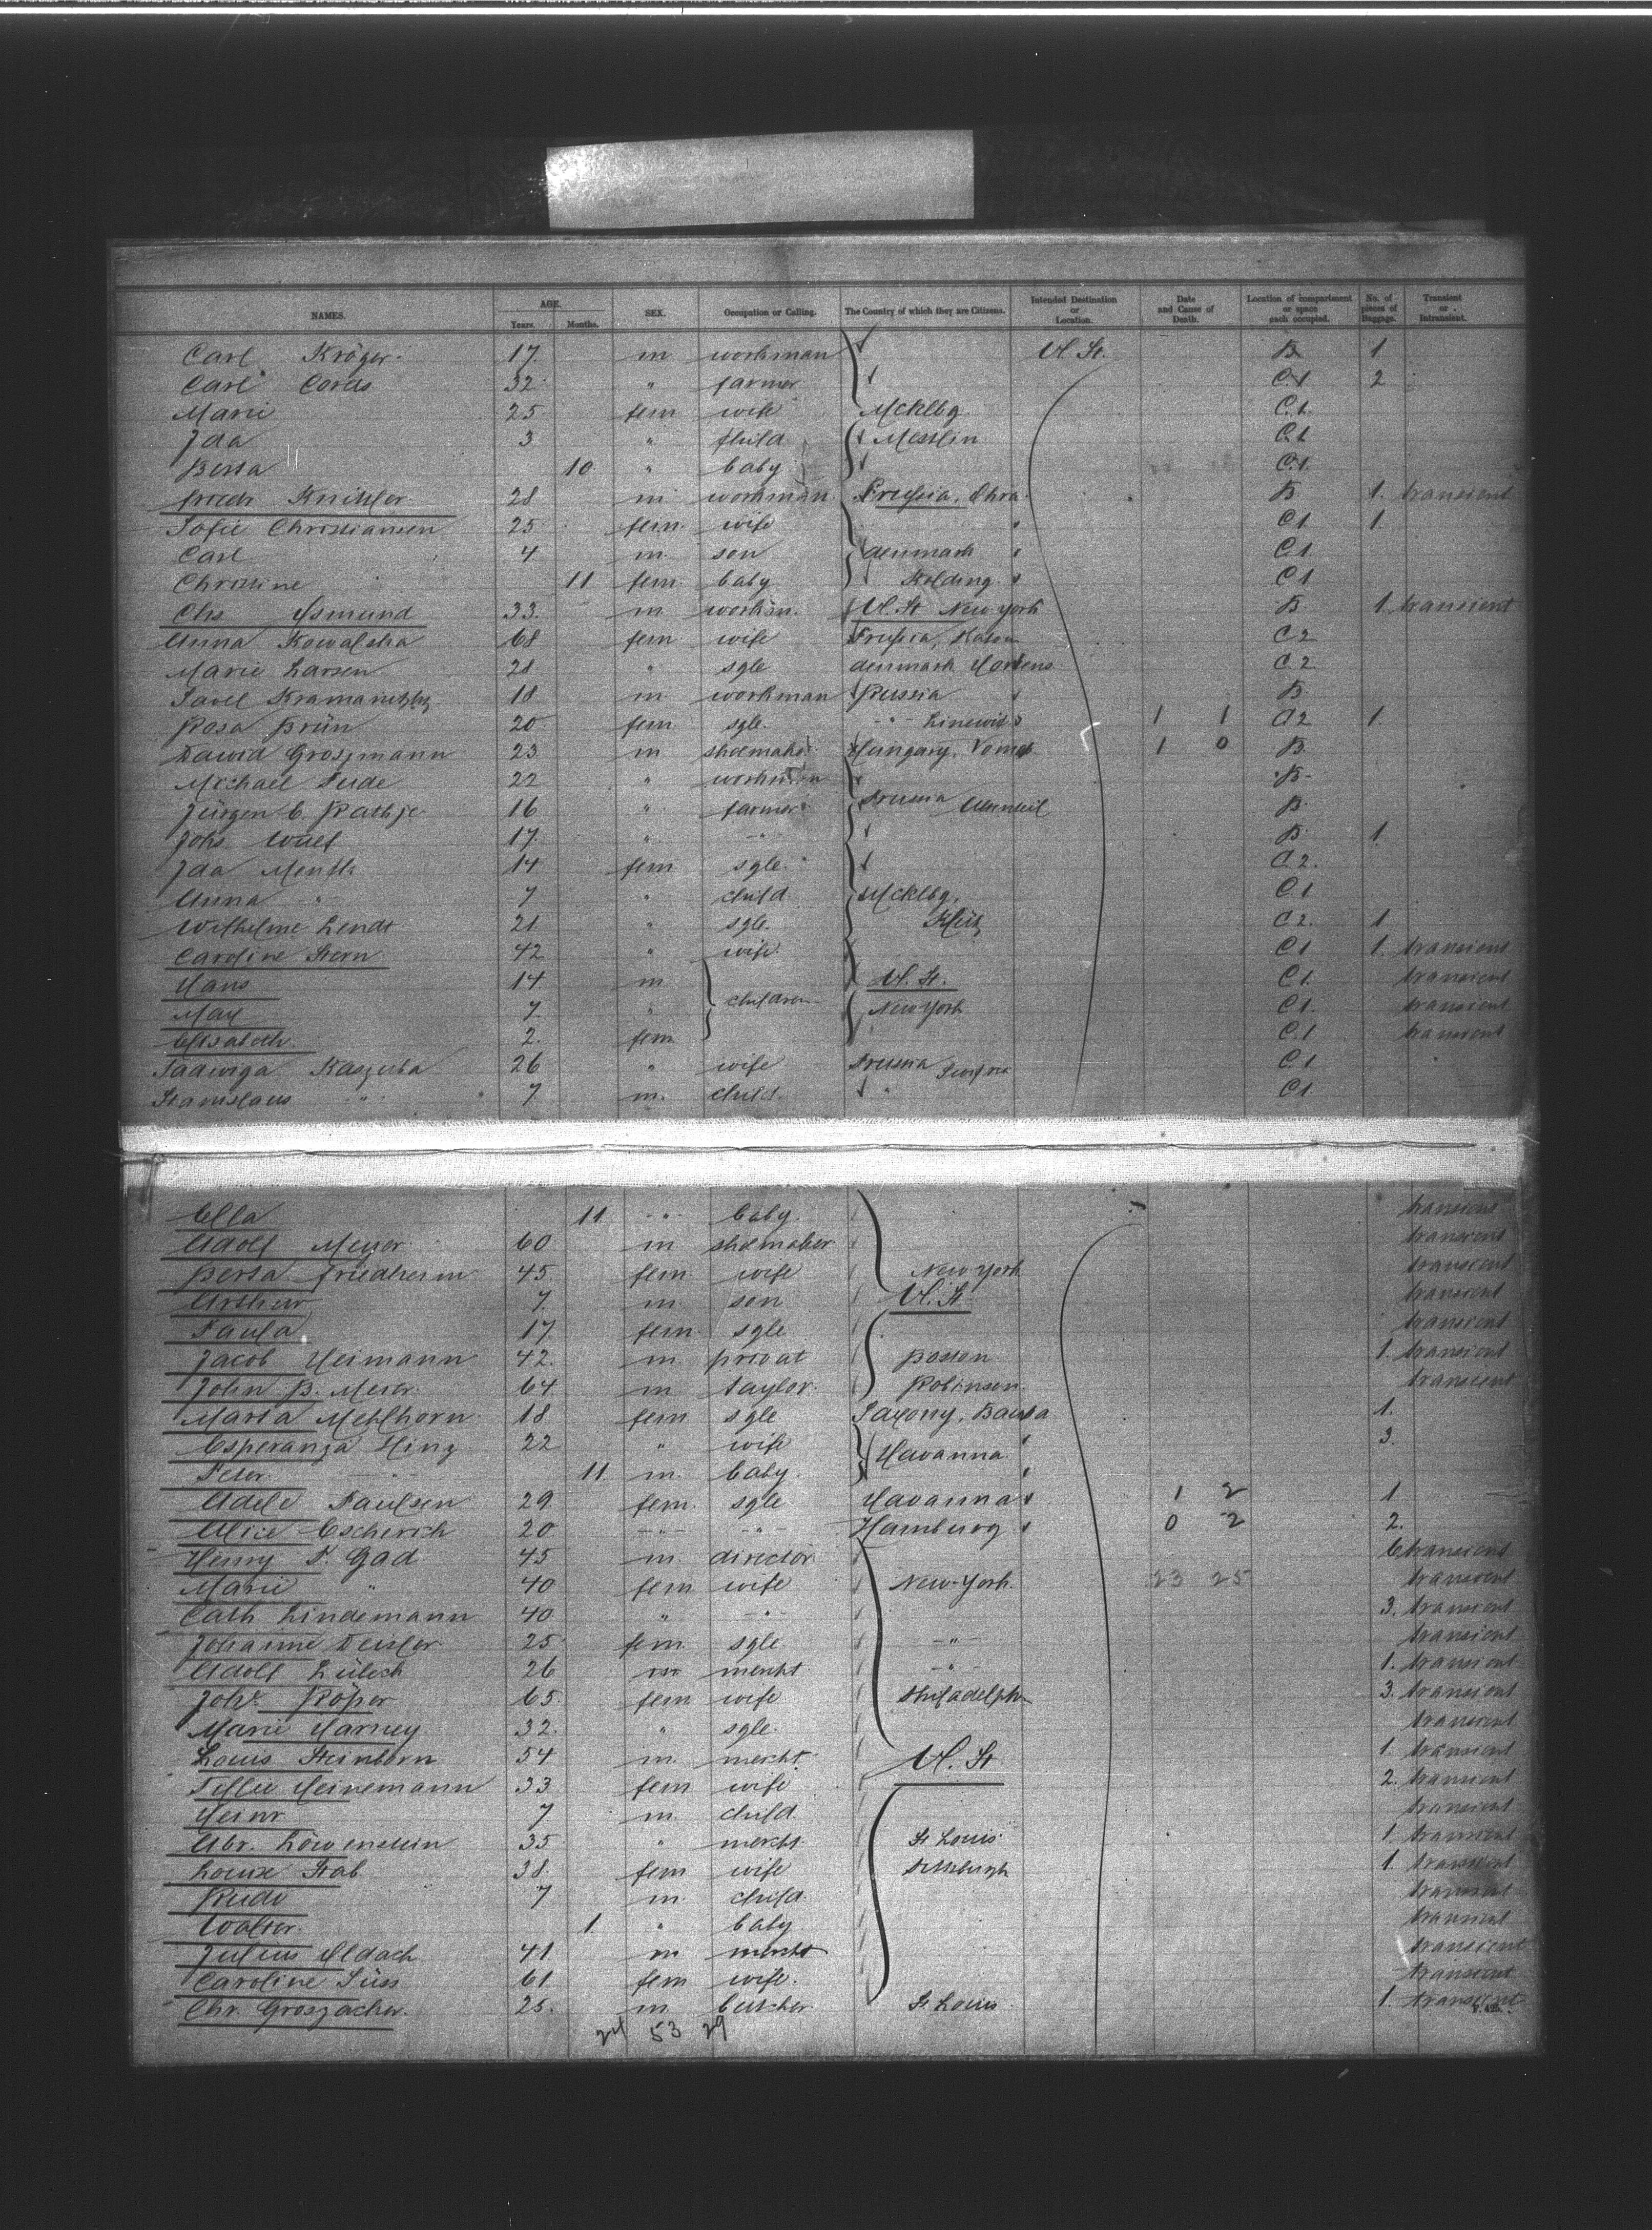 NAMES. AGE. Years. Months. SEX. Occupation or Calling. The Country of which they are Citizens. Intended Destination or Location. Date and Cause of Death. Location of compartment or space each occupied. No. of pieces of Baggage. Transient or Intransient.
Carl Kröger 17 m workman U. St. B 1
Carl Cords 32 " farmer C.1 2
Marie 25 fem wife Mcklbg C.1
Ida 3 " child C.1
Berta 10 " baby C.1
28 m workman Prussia, Ohra B 1. transient
Sofie Christiansen 25 fem wife C1 1.
Carl 4 m son denmark C.1
Christine 11 fem baby Kolding C1
Chs Asmund 33 m workm. U. St New York B 1 transient
Anna Kowalska 68 fem wife Prussia, C2
Marie Larsen 28 " sgle denmark Horsens C2
18 m workman Russia B
Rosa Brün 20 fem sgle. -"- 1 1 C2 1
Dawid Groszmann 23 m shoemaker Hungary, 1 0 B.
Michael Tude 22 " workman B
Jürgen C. Rathje 16 " farmer Prussia B
Johs. Wulf 17. " -"- B 1.
Ida 14 fem sgle C2.
Anna " 7 " child Mcklbg. C1
Wilhelmine Lendt 21 " sgle. C2. 1
Caroline Stern 42 " wife C1 1. transient
Hans 14 m children U. St. C1. transient
Max 7. " New York C1. transient
Elisabeth 2. fem C.1 transient
Jadwiga Kaszuba 26 " wife Prussia C.1
Stanislaus " 7 m. child. " C1.
Ella 11 -"- baby. transient
Adolf Meyer 60 m shoemaker transient
Berta Friedheim 45. fem wife New York transient
Arthur 7. m son U. St transient
Paula 17 fem sgle transient
Jacob Heimann 42. m privat Boston 1. transient
John B. Meier 64 m taylor. Robinson. transient
Marta Mehlhorn 18 fem sgle Saxony, 1.
Esperanza Hinz 22 " wife Havanna 3.
Peter -"- 11. m. baby.
Adele Paulsen 29. fem. sgle Havanna 1 2 1
Alice Escherich 20 -"- -"- Hamburg 0 2 2.
Henry P. Gad 45 m director 6 transient
Marie " 40 fem wife New-York. 23 25 transient
Cath Lindemann 40 " -"- 3. transient
Johanne Deisler 25 fem. sgle -"- transient
Adolf 26 m mercht -"- 1. transient
Johs. Röper 65 fem wife Philadelph 3. transient
Marie Harney 32. " sgle. transient
Louis Steinborn 54 m. mercht. U. St 1. transient
Tillie Heinemann 33 fem wife 2. transient
Heinr 7 m. child. transient
Abr. Löwenstein 35 " mercht. St Louis 1. transient
Louise Stab 38. fem wife Pittsburgh 1. transient
Rudo 7 m. child transient
Walter. 1. " baby transient
Julius 41 m mercht transient
Caroline Süss 61 fem wife. transient
Chr. Groszacher. 25. m. butcher St Louis 1. transient
24 53 29